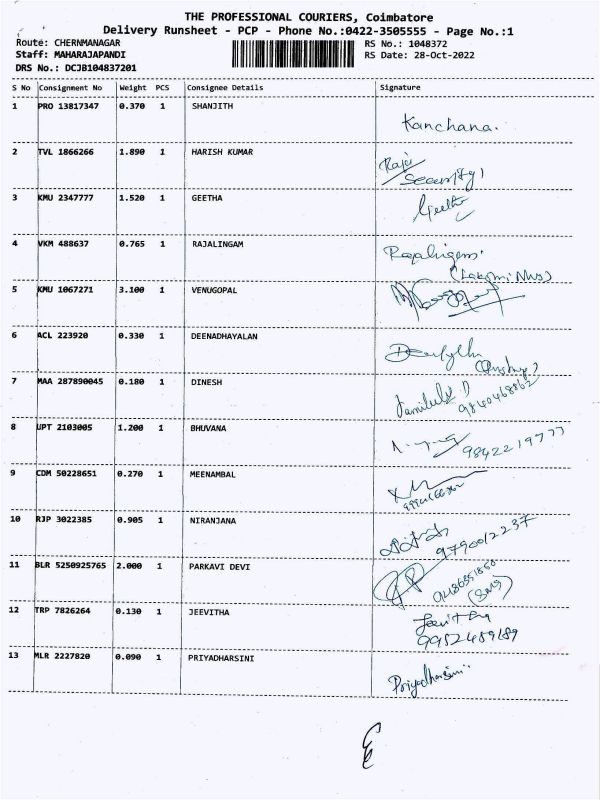 THE PROFESSIONAL COURIERS, Coimbatore
Delivery Runsheet - PCP - Phone No.:0422-3505555 - Page No.:1
Route: CHERNMANAGAR
Staff: MAHARAJAPANDI
DRS No.: DCJB104837201
RS No.: 1048372
RS Date: 28-Oct-2022
S No Consignment No Weight PCS Consignee Details Signature
1 PRO 13817347 0.370 1 SHANJITH
Kanchana.
2 TVL 1866266 1.890 1 HARISH KUMAR
Raja
Security
3 KMU 2347777 1.520 1 GEETHA
Geetha
4 VKM 488637 0.765 1 RAJALINGAM
Rajalingam.
5 KMU 1067271 3.100 1 VENUGOPAL
6 ACL 223920 0.330 1 DEENADHAYALAN
7 MAA 287890045 0.180 1 DINESH
9840468862
8 UPT 2103005 1.200 1 BHUVANA
9842219777
9 CDM 50228651 0.270 1 MEENAMBAL
10 RJP 3022385 0.905 1 NIRANJANA
9790012237
11 BLR 5250925765 2.000 1 PARKAVI DEVI
12 TRP 7826264 0.130 1 JEEVITHA
Jeevitha
9952489189
13 MLR 2227820 0.090 1 PRIYADHARSINI
Priyadharsini.